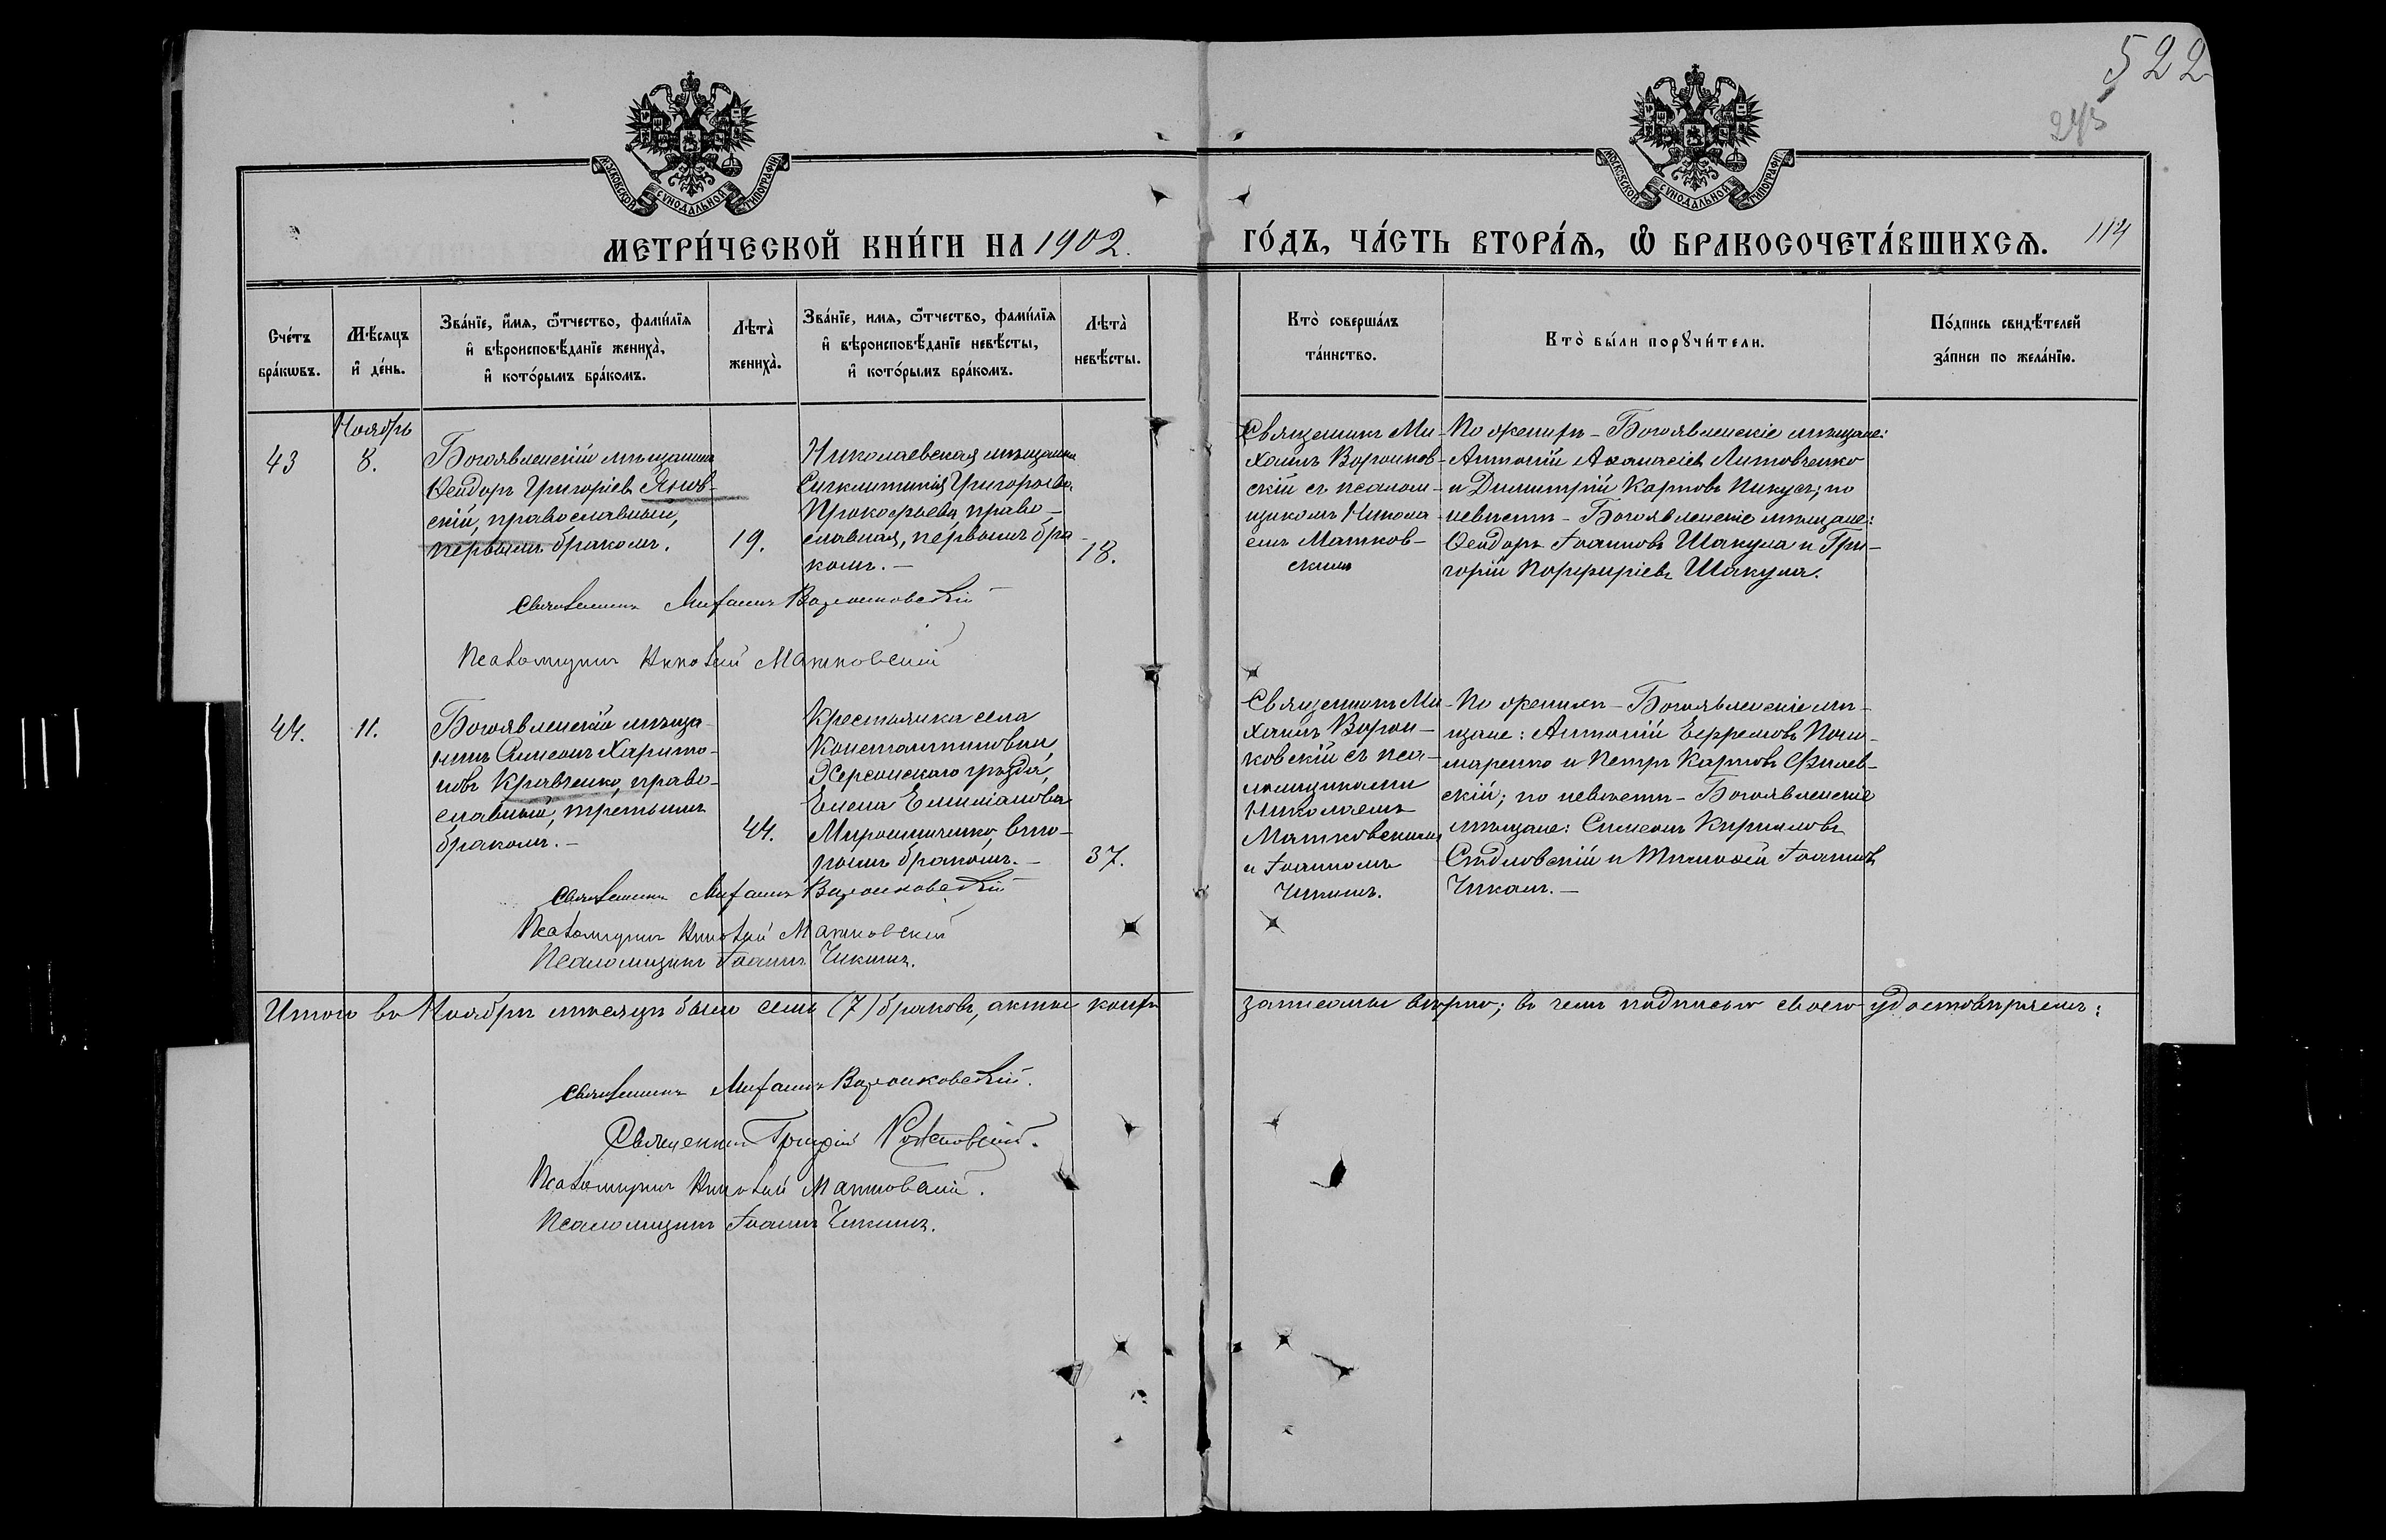 522
245
МОСКОВСКОЙ СѴНОДАЛЬНОЙ ТИПОГРАФІИ
МОСКОВСКОЙ СѴНОДАЛЬНОЙ ТИПОГРАФІИ
МЕТРИ́ЧЕСКОЙ КНИ́ГИ НА 1902. ГО́ДЪ, ЧА́СТЬ ВТОРА́Ѧ, Ѡ҆ БРАКОСОЧЕТА́ВШИХСѦ. 114
Сче́тъ бра́кѡвъ.
Мѣ́сѧцъ и҆ де́нь.
Зва́нїе, и҆́мѧ, ѻ҆́тчество, фамі́лїѧ
и҆ вѣроисповѣ́данїе жениха̀,
и҆ кото́рымъ бра́комъ.
Лѣта̀ жениха̀.
Зва́нїе, имѧ, ѻ҆́тчество, фамі́лїѧ
и҆ вѣроисповѣ́данїе невѣ́сты,
и҆ кото́рымъ бра́комъ.
Лѣта̀ невѣ́сты.
Кто̀ соверша́лъ
та́инство.
Кто̀ бы́ли порꙋчи́тели.
По́дпись свидѣ́телей
за́писи по жела́нїю.
Ноябрь
43
8.
Богоявленскій мѣщанинъ
Ѳеодоръ Григоріевъ Янов-
скій, православный,
первымъ бракомъ.
19.
Николаевская мѣщанка
Синклитикія Григорьева
Прокофьева, право-
славная, первымъ бра-
комъ.-
18.
Священникъ Ми-
хаилъ Воронков-
скій съ псалом-
щикомъ Никола
емъ Матков-
скимъ
По женихѣ - Богоявленскіе мѣщане:
Антоній Аѳанасіевъ Литовченко
и Димитрій Карповъ Пикусъ; по
невѣстѣ - Богоявленскіе мѣщане:
Ѳеодоръ Іоанновъ Шакула и Гри-
горій Порфиріевъ Шакула.
Священникъ Михаилъ Воронковскій
Псаломщикъ Николай Матковскій
44.
11.
Богоявленскій мѣща-
нинъ Симеонъ Харито-
новъ Кравченко, право-
славный, третьимъ
бракомъ.-
44.
Крестьянка села
Константиновки,
Херсонскаго уѣзда,
Елена Емиліанова
Мирошниченко, вто-
рымъ бракомъ.-
37.
Священникъ Ми-
хаилъ Ворон-
ковскій съ пса-
ломщиками
Николаемъ
Матковскимъ
и Іоанномъ
Чикинъ.
По женихѣ - Богоявленскіе мѣ-
щане: Антоній Ефремовъ
и Петръ Карповъ
скій; по невѣстѣ - Богоявленскіе
мѣщане: Симеонъ Кирилловъ
и Тимоѳей Іоанновъ
Священникъ Михаилъ Воронковскій
Псаломщикъ Николай Матковскій
Псаломщикъ Іоаннъ Чикинъ.
Итого въ Ноябрѣ мѣсяцѣ было семь (7) браковъ, акты коихъ записаны вѣрно; въ чемъ подписью своею удостовѣряемъ:
Священникъ Михаилъ Воронковскій.
Священникъ Григорій
Псаломщикъ Николай Матковскій.
Псаломщикъ Іоаннъ Чикинъ.